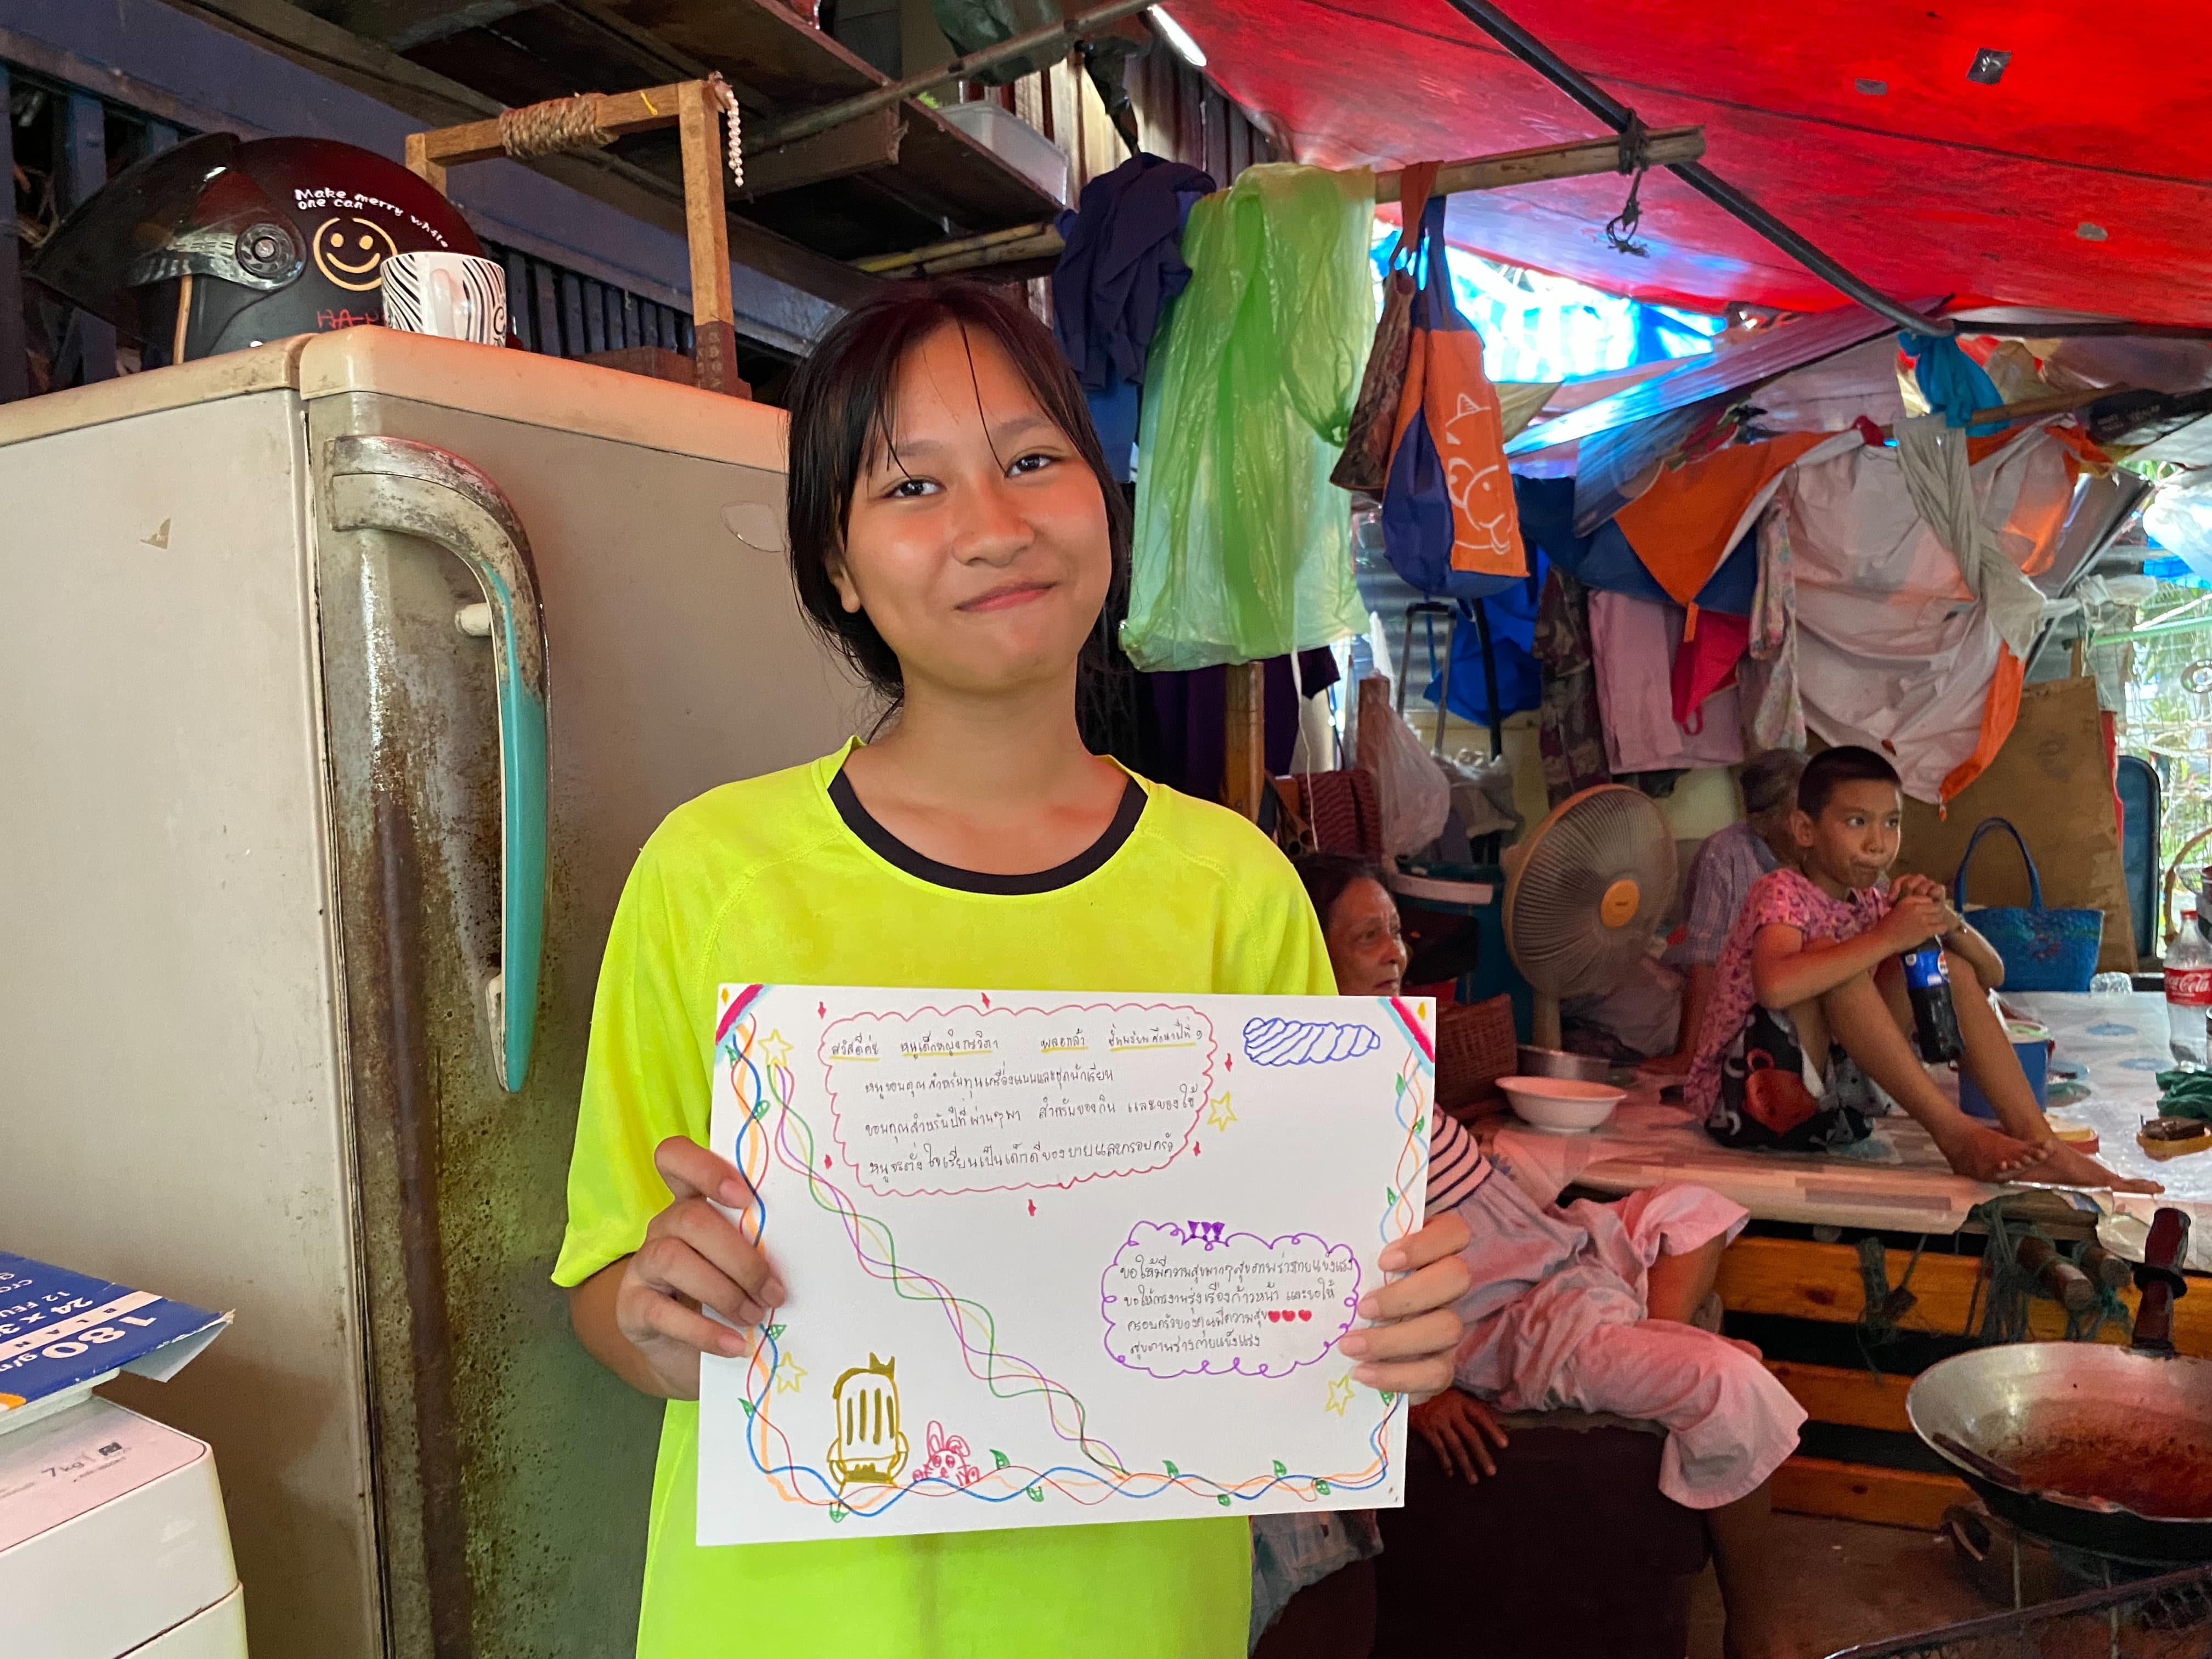 Make merry while
one can
HA-
สวัสดีค่ะ หนูเด็กหญิง พลอยกล้า ชั้นมัธยมศึกษาปีที่ 1
หนูขอบคุณสำหรับทุนเครื่องแบบและชุดนักเรียน
ขอบคุณสำหรับปีที่ผ่านๆมา สำหรับของกิน และของใช้
หนูจะตั้งใจเรียนเป็นเด็กดีของยายและครอบครัว
ขอให้มีความสุขมากๆสุขภาพร่างกายแข็งแรง
ขอให้การงานรุ่งเรืองก้าวหน้า และขอให้
ครอบครัวของคุณมีความสุข
สุขภาพร่างกายแข็งแรง
180
24
12 FEU
7kg
Coca-Cola